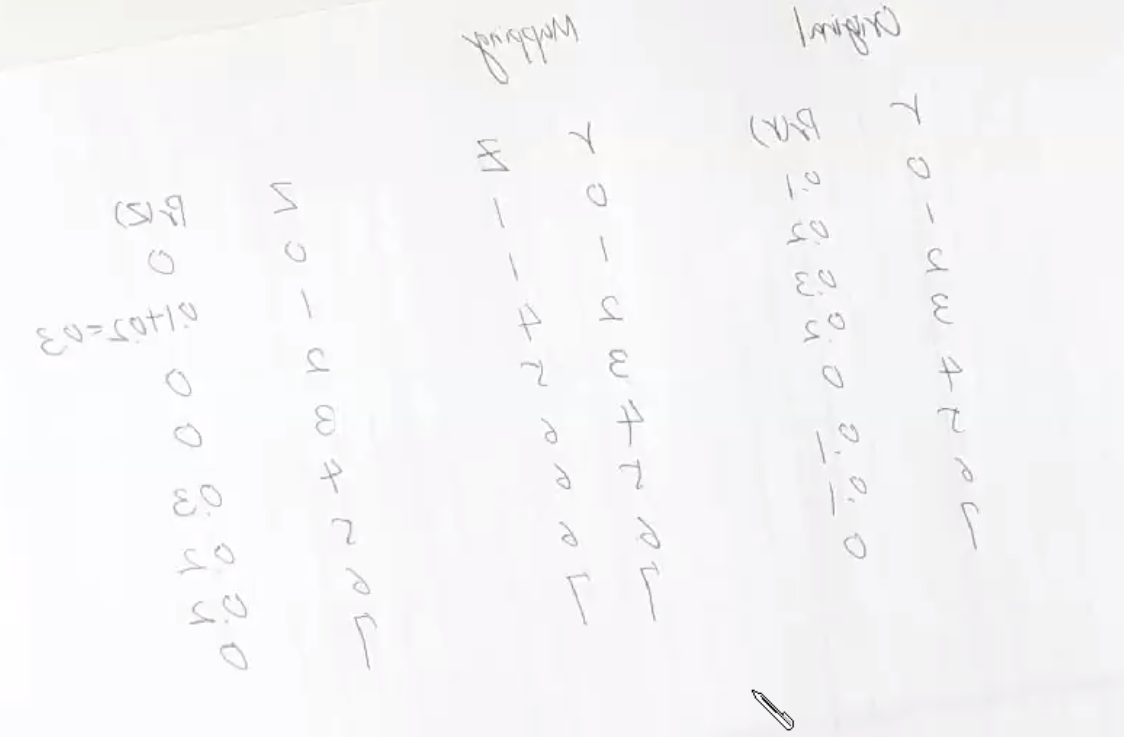 Original
r Pr(r)
0 0.1
1 0.2
2 0.3
3 0.2
4 0
5 0.1
6 0.1
7 0
Mapping
r z
0 1
1 1
2 4
3 5
4 6
5 6
6 6
7 7
z Pr(z)
0 0
1 0.1+0.2=0.3
2 0
3 0
4 0.3
5 0.2
6 0.2
7 0